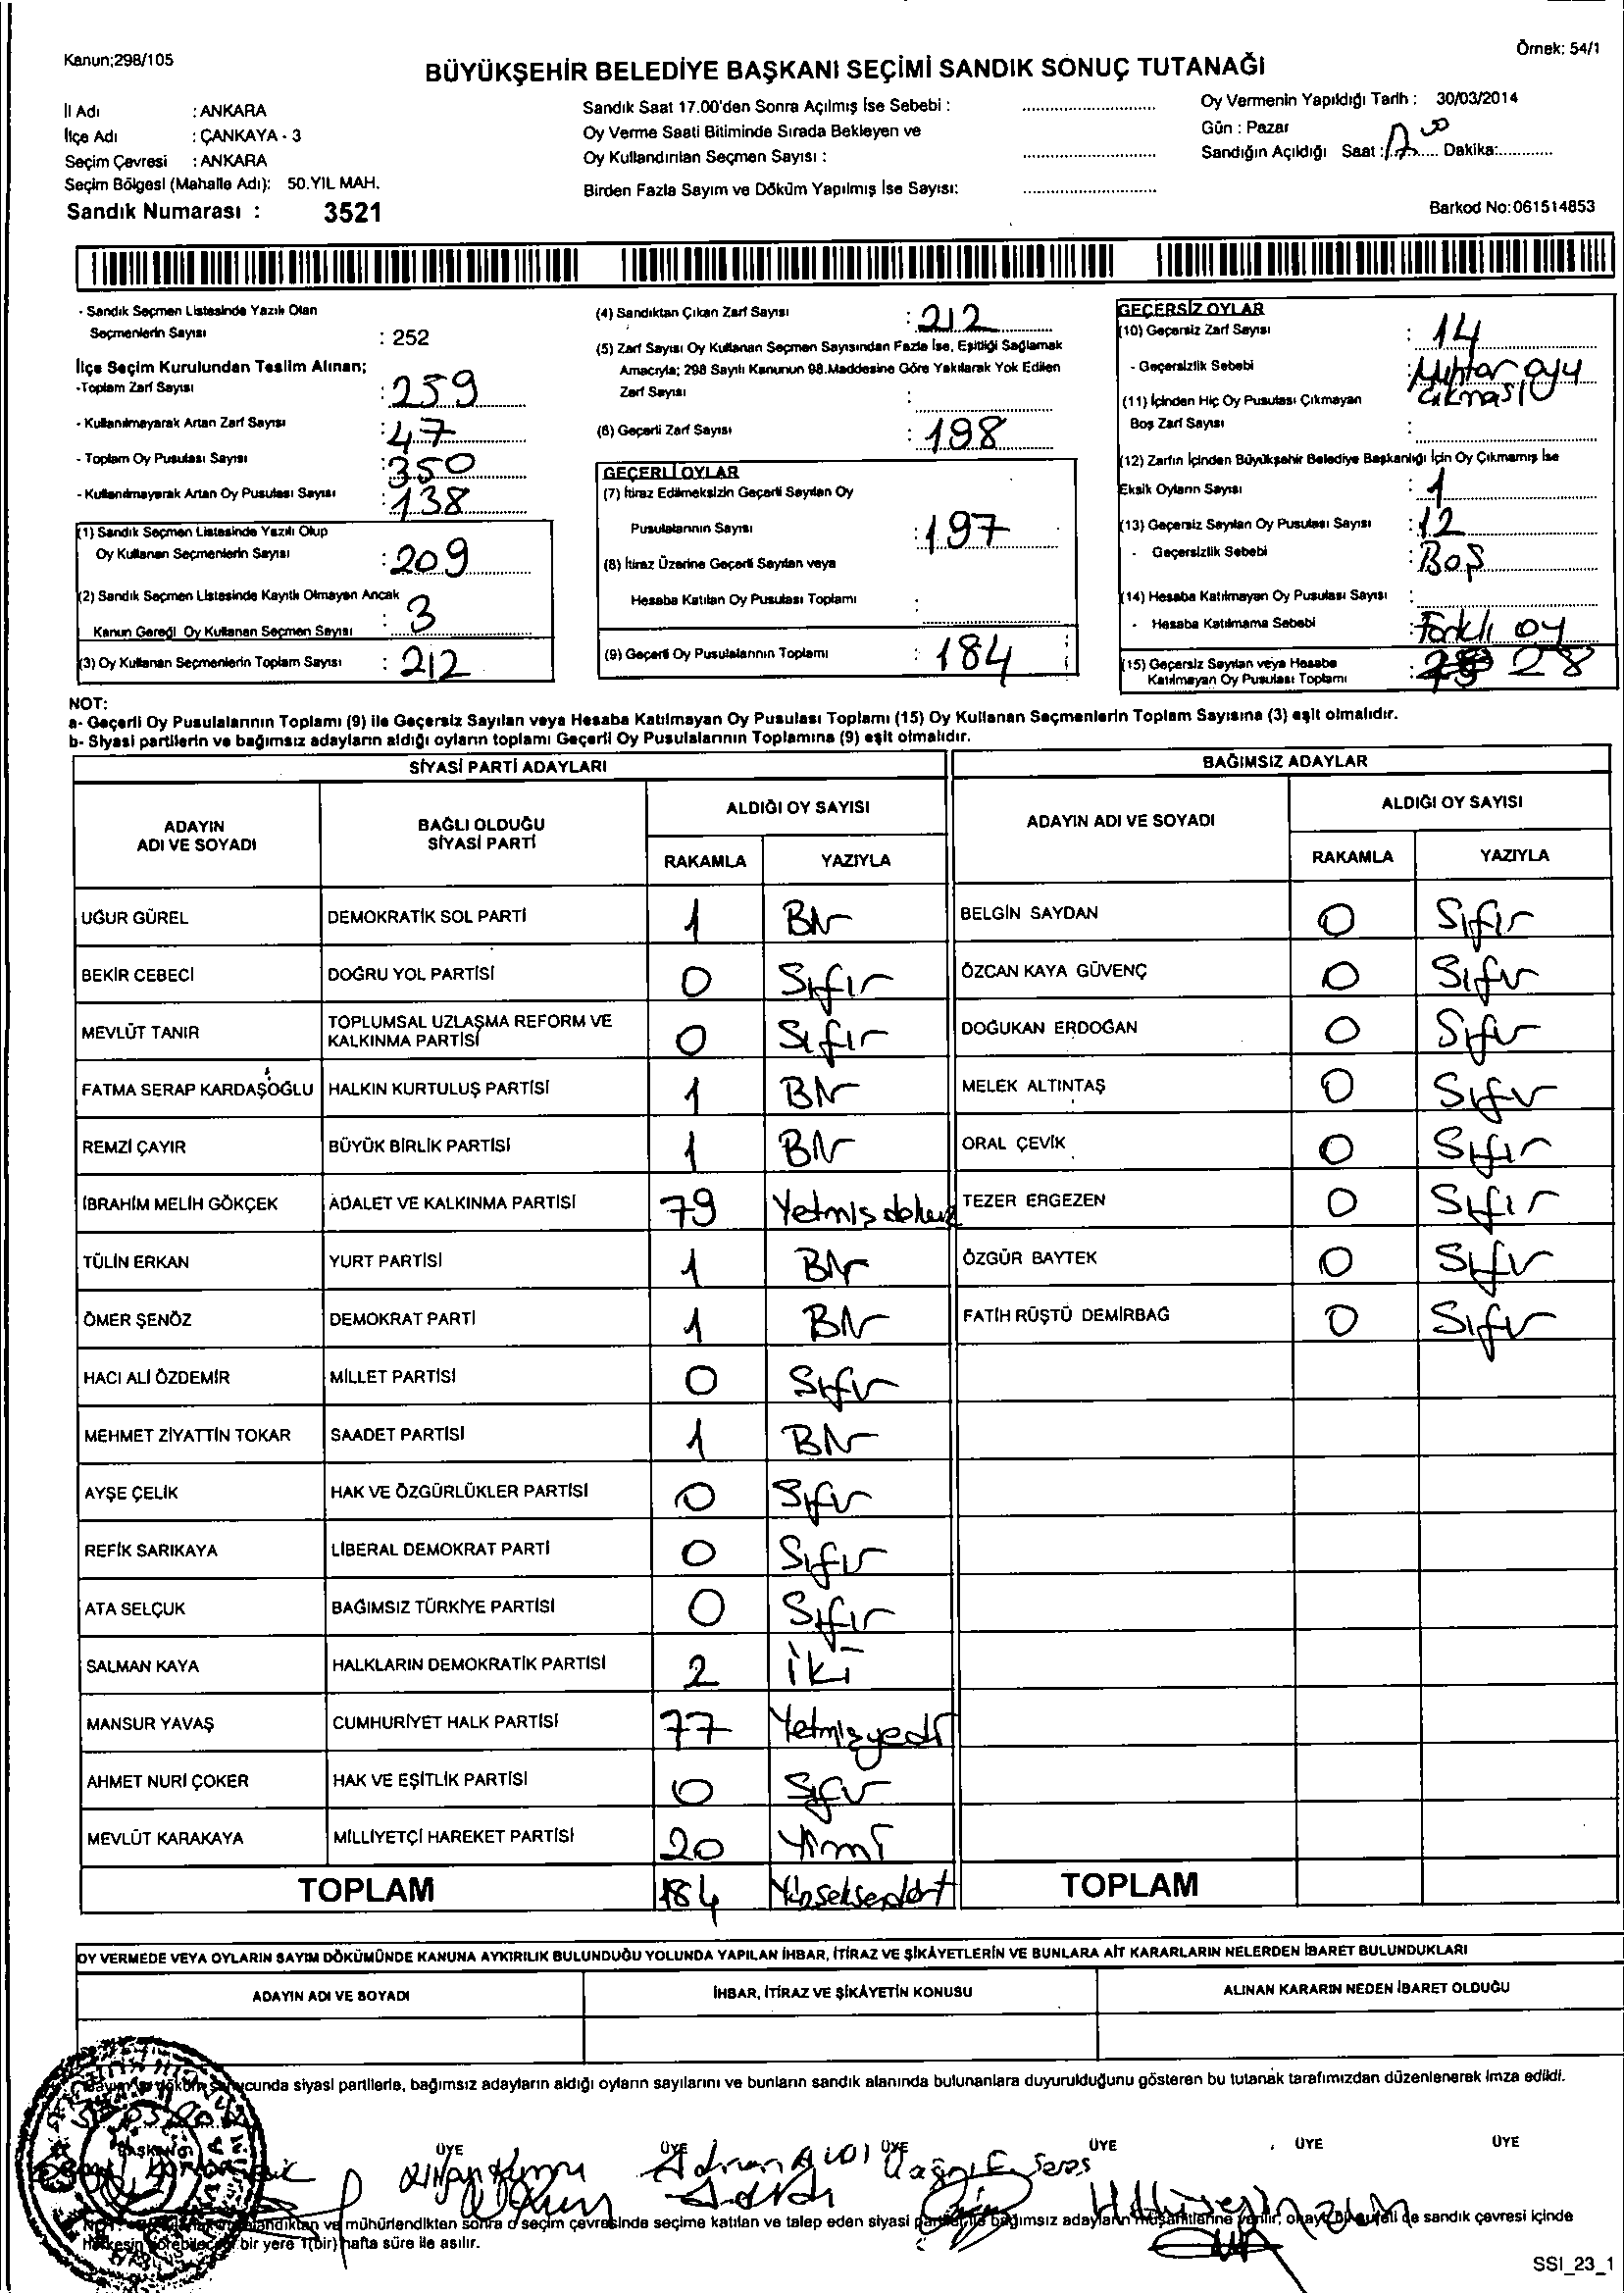 Kanun;298/105
Örnek: 54/1
BÜYÜKŞEHİR BELEDİYE BAŞKANI SEÇİMİ SANDIK SONUÇ TUTANAĞI
İl Adı : ANKARA
İlçe Adı : ÇANKAYA - 3
Seçim Çevresi : ANKARA
Seçim Bölgesi (Mahalle Adı): 50.YIL MAH.
Sandık Numarası : 3521
Sandık Saat 17.00'den Sonra Açılmış İse Sebebi :
Oy Verme Saati Bitiminde Sırada Bekleyen ve
Oy Kullandırılan Seçmen Sayısı :
Birden Fazla Sayım ve Döküm Yapılmış İse Sayısı:
Oy Vermenin Yapıldığı Tarih : 30/03/2014
Gün : Pazar
Sandığın Açıldığı Saat : 17 00 Dakika:
Barkod No:061514853
- Sandık Seçmen Listesinde Yazılı Olan
Seçmenlerin Sayısı : 252
İlçe Seçim Kurulundan Teslim Alınan;
-Toplam Zarf Sayısı : 259
- Kullanılmayarak Artan Zarf Sayısı : 47
- Toplam Oy Pusulası Sayısı : 350
- Kullanılmayarak Artan Oy Pusulası Sayısı : 138
(1) Sandık Seçmen Listesinde Yazılı Olup
Oy Kullanan Seçmenlerin Sayısı : 209
(2) Sandık Seçmen Listesinde Kayıtlı Olmayan Ancak
Kanun Gereği Oy Kullanan Seçmen Sayısı : 3
(3) Oy Kullanan Seçmenlerin Toplam Sayısı : 212
(4) Sandıktan Çıkan Zarf Sayısı : 212
(5) Zarf Sayısı Oy Kullanan Seçmen Sayısından Fazla İse, Eşitliği Sağlamak
Amacıyla; 298 Sayılı Kanunun 98.Maddesine Göre Yakılarak Yok Edilen
Zarf Sayısı :
(6) Geçerli Zarf Sayısı : 198
GEÇERLİ OYLAR
(7) İtiraz Edilmeksizin Geçerli Sayılan Oy
Pusulalarının Sayısı : 197
(8) İtiraz Üzerine Geçerli Sayılan veya
Hesaba Katılan Oy Pusulası Toplamı :
(9) Geçerli Oy Pusulalarının Toplamı : 184
GEÇERSİZ OYLAR
(10) Geçersiz Zarf Sayısı : 14
- Geçersizlik Sebebi Muhtar oyu
çıkması
(11) İçinden Hiç Oy Pusulası Çıkmayan
Boş Zarf Sayısı :
(12) Zarfın İçinden Büyükşehir Belediye Başkanlığı İçin Oy Çıkmamış İse
Eksik Oyların Sayısı : 1
(13) Geçersiz Sayılan Oy Pusulası Sayısı : 12
- Geçersizlik Sebebi : Boş
(14) Hesaba Katılmayan Oy Pusulası Sayısı :
- Hesaba Katılmama Sebebi : Farklı oy
(15) Geçersiz Sayılan veya Hesaba
Katılmayan Oy Pusulası Toplamı : 28
NOT:
a- Geçerli Oy Pusulalarının Toplamı (9) ile Geçersiz Sayılan veya Hesaba Katılmayan Oy Pusulası Toplamı (15) Oy Kullanan Seçmenlerin Toplam Sayısına (3) eşit olmalıdır.
b- Siyasi partilerin ve bağımsız adayların aldığı oyların toplamı Geçerli Oy Pusulalarının Toplamına (9) eşit olmalıdır.
SİYASİ PARTİ ADAYLARI
ADAYIN
ADI VE SOYADI
BAĞLI OLDUĞU
SİYASİ PARTİ
ALDIĞI OY SAYISI
RAKAMLA YAZIYLA
UĞUR GÜREL DEMOKRATİK SOL PARTİ 1 Bir
BEKİR CEBECİ DOĞRU YOL PARTİSİ 0 Sıfır
MEVLÜT TANIR TOPLUMSAL UZLAŞMA REFORM VE
KALKINMA PARTİSİ 0 Sıfır
FATMA SERAP KARDAŞOĞLU HALKIN KURTULUŞ PARTİSİ 1 Bir
REMZİ ÇAYIR BÜYÜK BİRLİK PARTİSİ 1 Bir
İBRAHİM MELİH GÖKÇEK ADALET VE KALKINMA PARTİSİ 79 Yetmiş dokuz
TÜLİN ERKAN YURT PARTİSİ 1 Bir
ÖMER ŞENÖZ DEMOKRAT PARTİ 1 Bir
HACI ALİ ÖZDEMİR MİLLET PARTİSİ 0 Sıfır
MEHMET ZİYATTİN TOKAR SAADET PARTİSİ 1 Bir
AYŞE ÇELİK HAK VE ÖZGÜRLÜKLER PARTİSİ 0 Sıfır
REFİK SARIKAYA LİBERAL DEMOKRAT PARTİ 0 Sıfır
ATA SELÇUK BAĞIMSIZ TÜRKİYE PARTİSİ 0 Sıfır
SALMAN KAYA HALKLARIN DEMOKRATİK PARTİSİ 2 İki
MANSUR YAVAŞ CUMHURİYET HALK PARTİSİ 77 Yetmişyedi
AHMET NURİ ÇOKER HAK VE EŞİTLİK PARTİSİ 0 Sıfır
MEVLÜT KARAKAYA MİLLİYETÇİ HAREKET PARTİSİ 20 Yirmi
TOPLAM 184 Yüzseksendört
BAĞIMSIZ ADAYLAR
ADAYIN ADI VE SOYADI
ALDIĞI OY SAYISI
RAKAMLA YAZIYLA
BELGİN SAYDAN 0 Sıfır
ÖZCAN KAYA GÜVENÇ 0 Sıfır
DOĞUKAN ERDOĞAN 0 Sıfır
MELEK ALTINTAŞ 0 Sıfır
ORAL ÇEVİK 0 Sıfır
TEZER ERGEZEN 0 Sıfır
ÖZGÜR BAYTEK 0 Sıfır
FATİH RÜŞTÜ DEMİRBAĞ 0 Sıfır
TOPLAM
OY VERMEDE VEYA OYLARIN SAYIM DÖKÜMÜNDE KANUNA AYKIRILIK BULUNDUĞU YOLUNDA YAPILAN İHBAR, İTİRAZ VE ŞİKÂYETLERİN VE BUNLARA AİT KARARLARIN NELERDEN İBARET BULUNDUKLARI
ADAYIN ADI VE SOYADI İHBAR, İTİRAZ VE ŞİKÂYETİN KONUSU ALINAN KARARIN NEDEN İBARET OLDUĞU
siyasi partilerle, bağımsız adayların aldığı oyların sayılarını ve bunların sandık alanında bulunanlara duyurulduğunu gösteren bu tutanak tarafımızdan düzenlenerek imza edildi.
BAŞKAN ÜYE ÜYE ÜYE ÜYE ÜYE ÜYE
Adnan
ve mühürlendikten sonra o seçim çevresinde seçime katılan ve talep eden siyasi bağımsız adayların verilir, sandık çevresi içinde
bir yere 1(bir) hafta süre ile asılır.
SSI_23_1